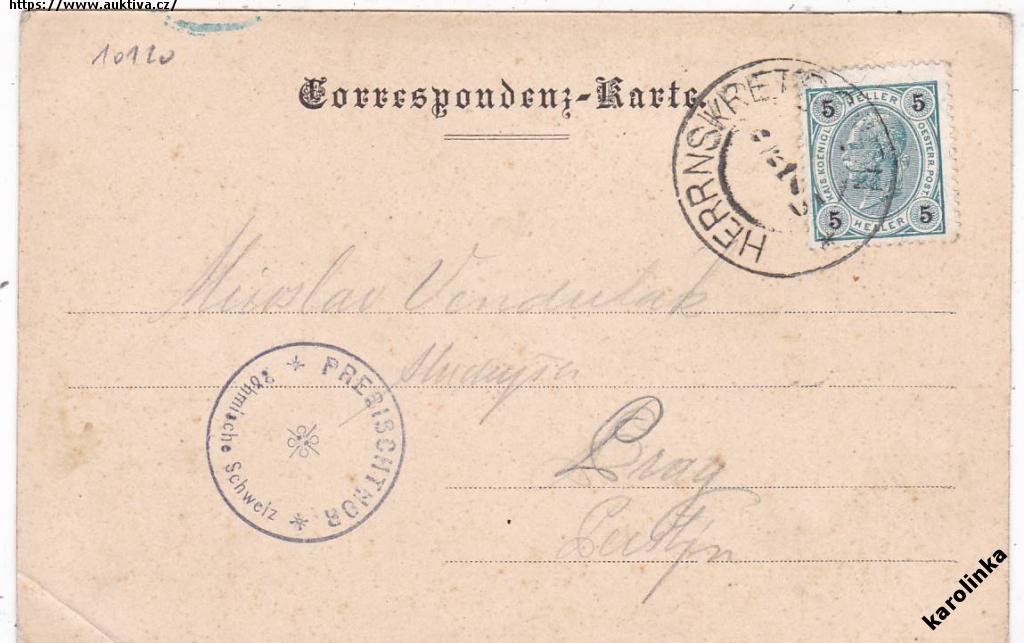 https://www.auktiva.cz/
10120
Correspondenz-Karte.
HERRNSKRETSCH
5 HELLER 5
KAIS. KOENIGL. OESTERR. POST.
5 HELLER 5
Miroslav Vondrulák
PREBISCHTHOR
Böhmische Schweiz
Prag
karolinka